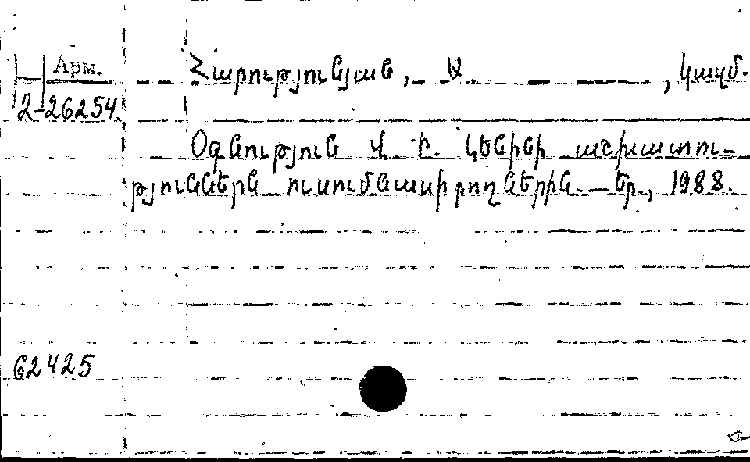 Арм.
2-26254
Հարությունյան, Ա , կազմ.
Օգնություն Վ. Ի. Լենինի աշխատու-
թյուններն ուսումնասիրողներին. — Եր., 1988.
62425